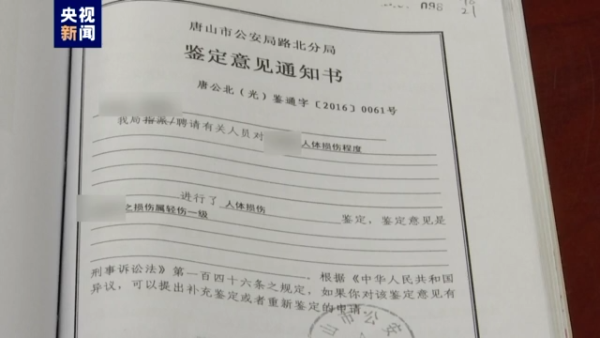 央视新闻
098
21
唐山市公安局路北分局
鉴定意见通知书
唐公北（光）鉴通字〔2016〕0061号
我局指派/聘请有关人员对 人体损伤程度
进行了 人体损伤 鉴定，鉴定意见是
之损伤属轻伤一级
。根据《中华人民共和国
刑事诉讼法》第一百四十六条之规定，如果你对该鉴定意见有
异议，可以提出补充鉴定或者重新鉴定的申请。
山市公安